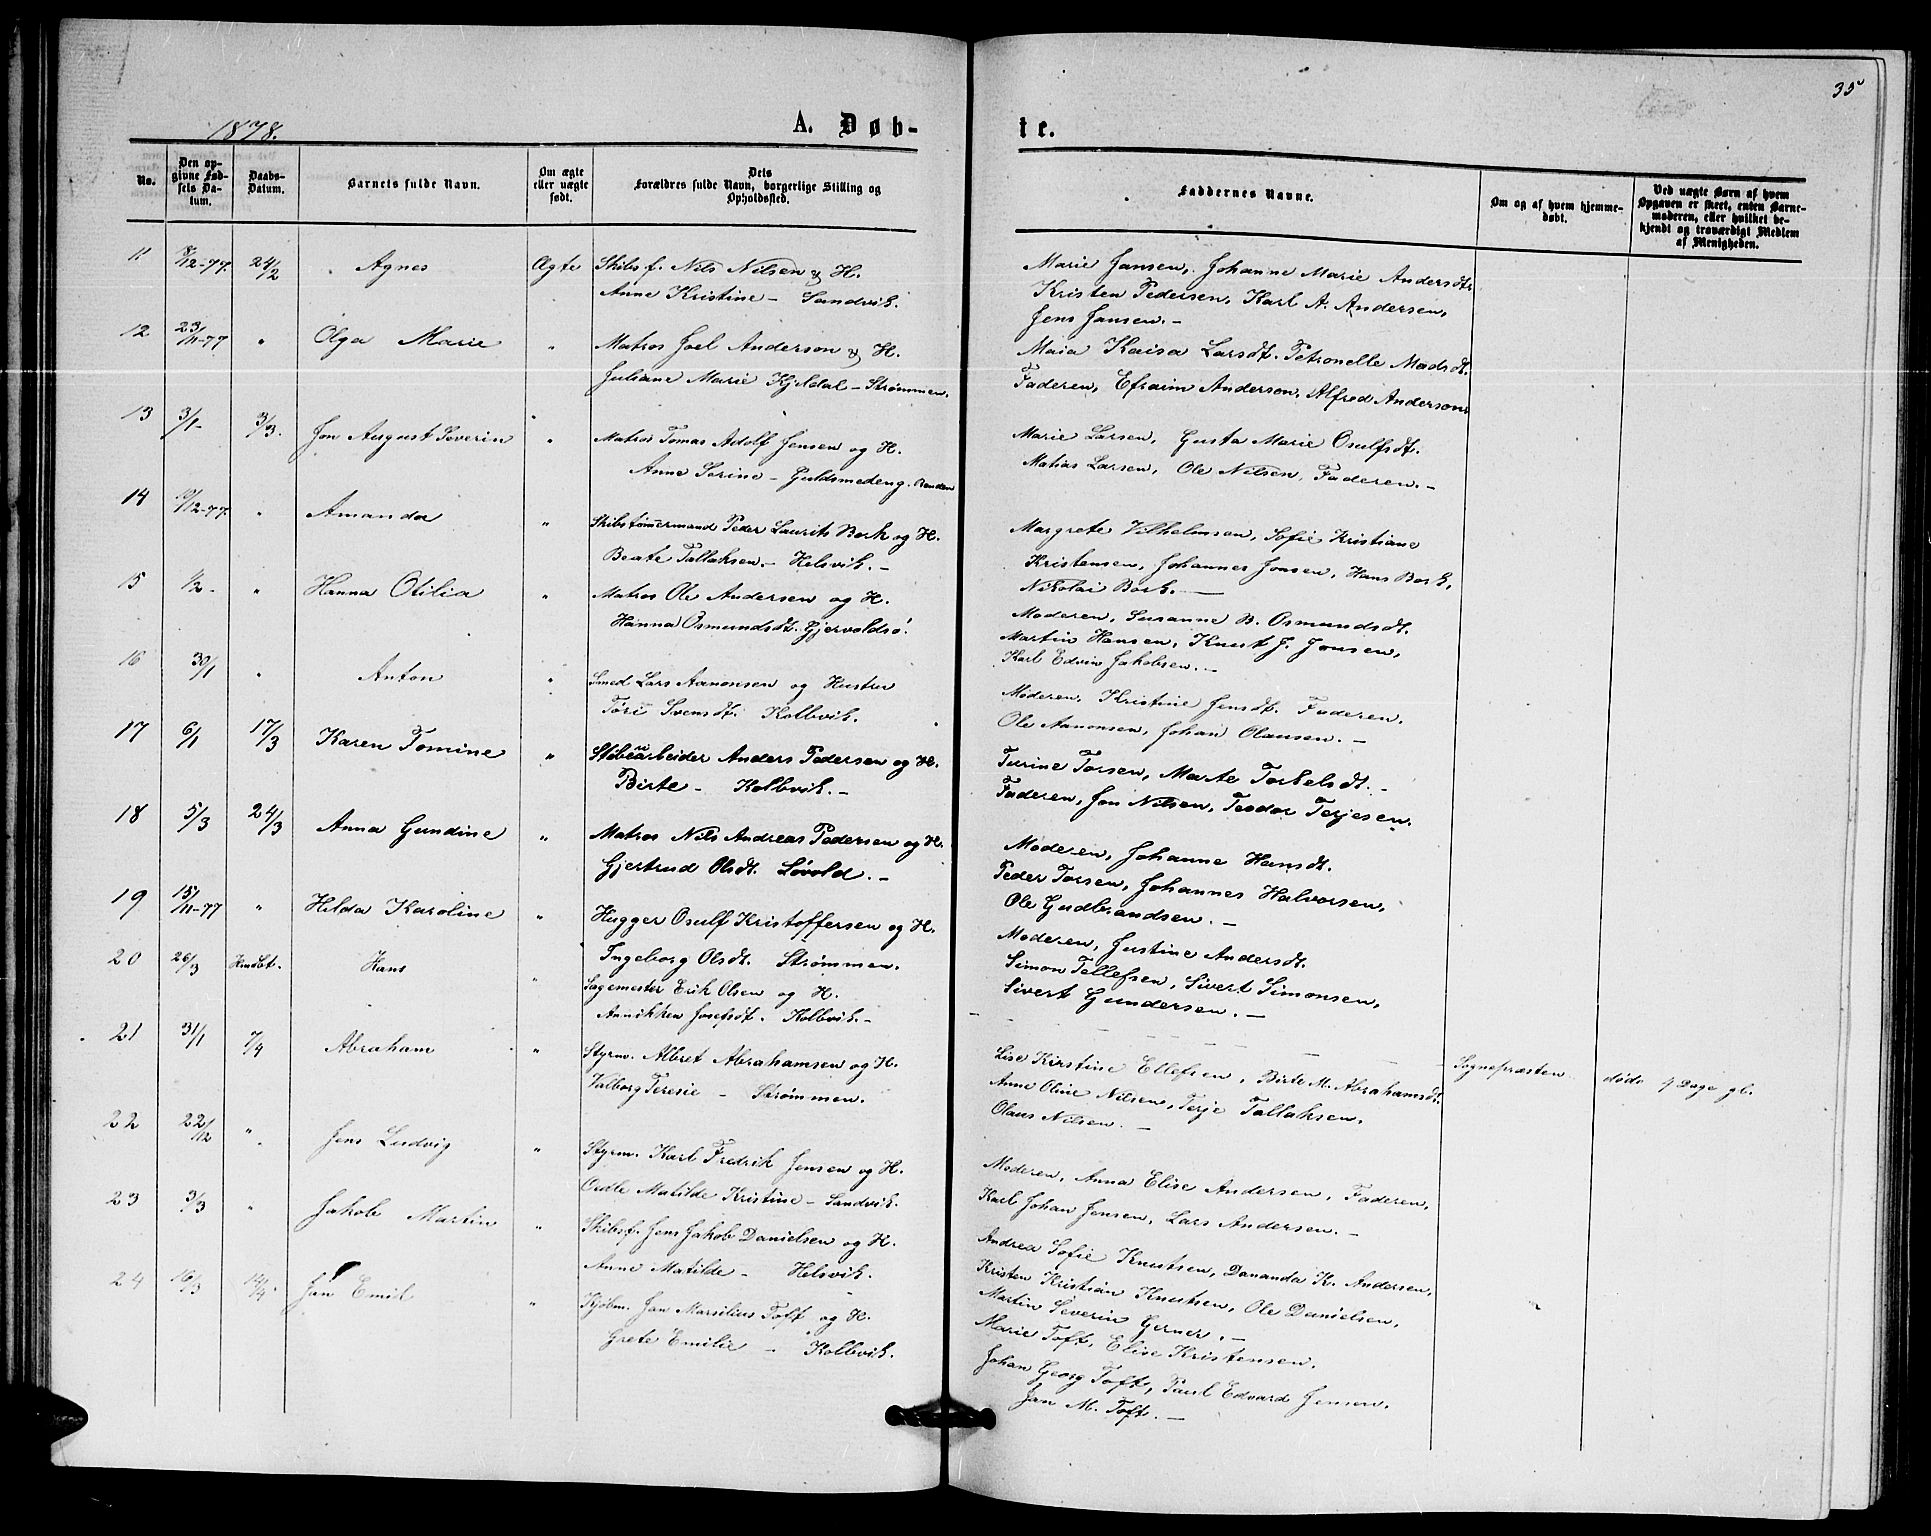 35
1878.
A. Døb-
te.
No.
Den op-
givne Fød-
sels Da-
tum.
Daabs-
Datum.
Barnets fulde Navn.
Om ægte
eller uægte
født.
Dets
Forældres fulde Navn, borgerlige Stilling og
Opholdssted.
Faddernes Navne.
Om og af hvem hjemme-
døbt.
Ved uægte Børn af hvem
Opgaven er skeet, enten Barne-
moderen, eller hvilket be-
kjendt og troværdigt Medlem
af Menigheden.
11 8/12-77. 24/2 Agnes Ægte Skibsf. Nils Nilsen & H.
Anne Kristine - Sandvik.
Marie Jansen, Johanne Marie Andersdtr
Kristen Pedersen, Karl A. Andersen,
Jens Jansen. -
12 23/11-77 " Olga Marie " Matros Joel Anderson & H.
Juliane Marie Kjeldal - Strømmen.
Maia Kaisa Larsdt. Petronelle Madsdt.
Faderen, Efraim Anderson, Alfred Anderson.
13 3/1- 3/3. Jon August Severin " Matros Tomas Adolf Jensen og H.
Anne Sorine - Guldsmedeng. Banden
Marie Larsen, Gusta Marie Osulfsdt.
Matias Larsen, Ole Nilsen, Faderen. -
14 9/12-77. " Amanda " Skibstømermand Peder Laurits Bork og H.
Beate Tallaksen. - Helsvik. -
Margrete Vilhelmsen, Sofie Kristiane
Kristensen, Johannes Jonsen, Hans Bork,
Nikolai Bork. -
15 1/2- " Hanna Otilia " Matros Ole Andersen og H.
Hanna Osmundsdt. Gjervoldsø.
Moderen, Susanne B. Osmundsdt.
Martin Hansen, Knut J. Jonsen,
Karl Edvin Jakobsen. -
16 30/1 " Anton " Smed Lars Aanonsen og Hustru
Tóri Svensdt. Kolbvik.
Moderen, Kristine Jensdt. Faderen,
Ole Aanonsen, Johan Olausen. -
17 6/1 17/3 Karen Tomine " Støbearbeider Anders Pedersen og H.
Birte - Kolbvik. -
Turine Torsen, Marte Torkelsdt. -
Faderen, Jon Nilsen, Teodor Terjesen.
18 5/3 24/3 Anna Gundine " Matros Nils Andreas Pedersen og H.
Gjertrud Olsdt. Løvold. -
Moderen, Johanne Hansdt.
Peder Torsen, Johannes Halvorsen,
Ole Gudbrandsen. -
19 15/11-77 " Hilda Karoline " Hugger Osulf Kristoffersen og H.
Ingeborg Olsdt. Strømmen.
Moderen, Justine Andersdt.
Simon Tellefsen, Sivert Simonsen,
Sivert Gundersen. -
20 26/3 Hmdbt. Hans " Sagemester Erik Olsen og H.
Annikken Josefsdt. Kolbvik. -
Sognepræsten døde 9 Dage gl.
21 31/1 7/4 Abraham " Styrm. Albret Abrahamsen og H.
Valborg Teresie - Strømmen.
Lise Kirstine Ellefsen, Birte M. Abrahamsdt.
Anne Oline Nilsen, Terje Tallaksen,
Olaus Nilsen. -
22 22/12 " Jens Ludvig " Styrm. Karl Fredrik Jensen og H.
Oedle Matilde Kristine - Sandvik.
Moderen, Anna Elise Andersen, Faderen,
Karl Johan Jensen, Lars Andersen. -
23 3/3 " Jakob Martin " Skibsf. Jens Jakob Danielsen og H.
Anne Matilde - Helsvik.
Andrea Sofie Knutsen, Dananda K. Andersen,
Kristen Kristian Knutsen, Ole Danielsen,
Martin Severin Gerner. -
24 16/3 14/4 Jan Emil " Kjøbm. Jan Marsilius Toft og H.
Grete Emilie - Kolbvik.
Marie Toft, Elise Kristensen,
Johan Georg Toft, Paul Edvard Jensen,
Jan M. Toft. -